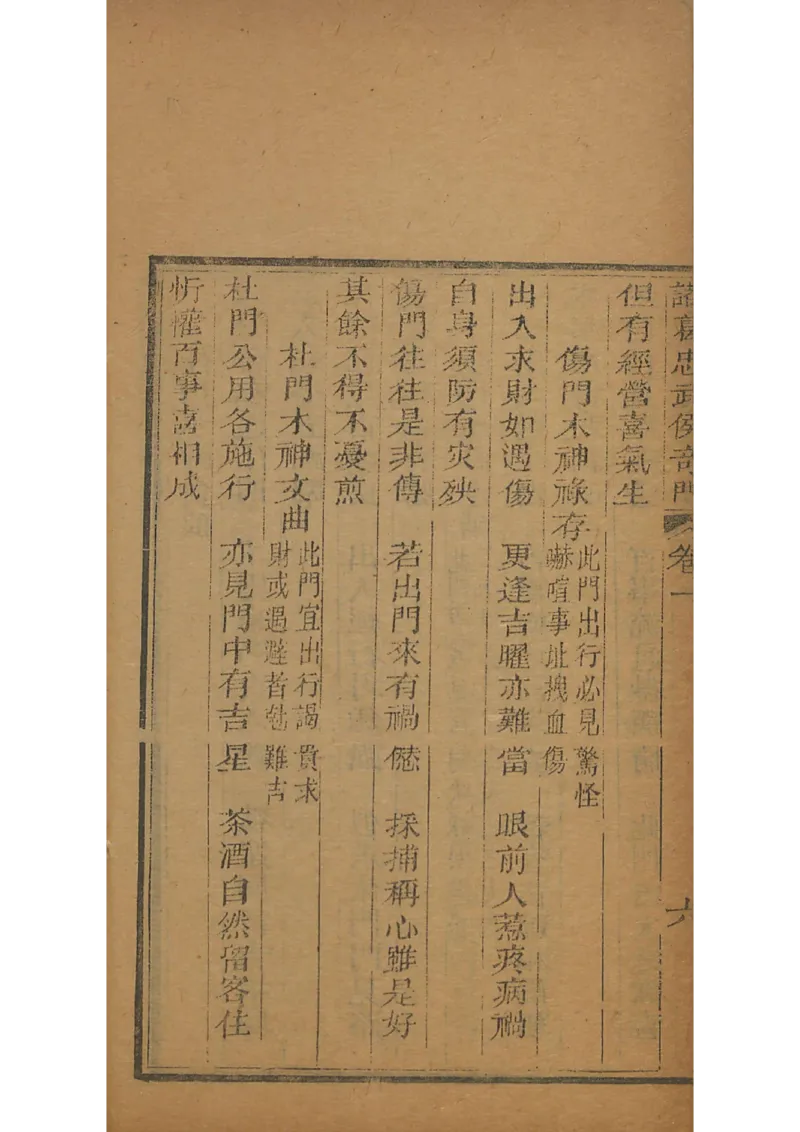 諸葛忠武侯奇門 卷一 六
但有經營喜氣生
傷門木神祿存 此門出行必見驚怪
嚇喧事址拽血傷
出入求財如遇傷 更逢吉曜亦難當 眼前人惹疼病禍
自身須防有灾殃
傷門往往是非傳 若出門來有禍愆 採捕稱心雖是好
其餘不得不憂煎
杜門木神文曲 此門宜出行謁貴求
財或遇避 難吉
杜門公用各施行 亦見門中有吉星 茶酒自然留客住
忻懽百事喜相成